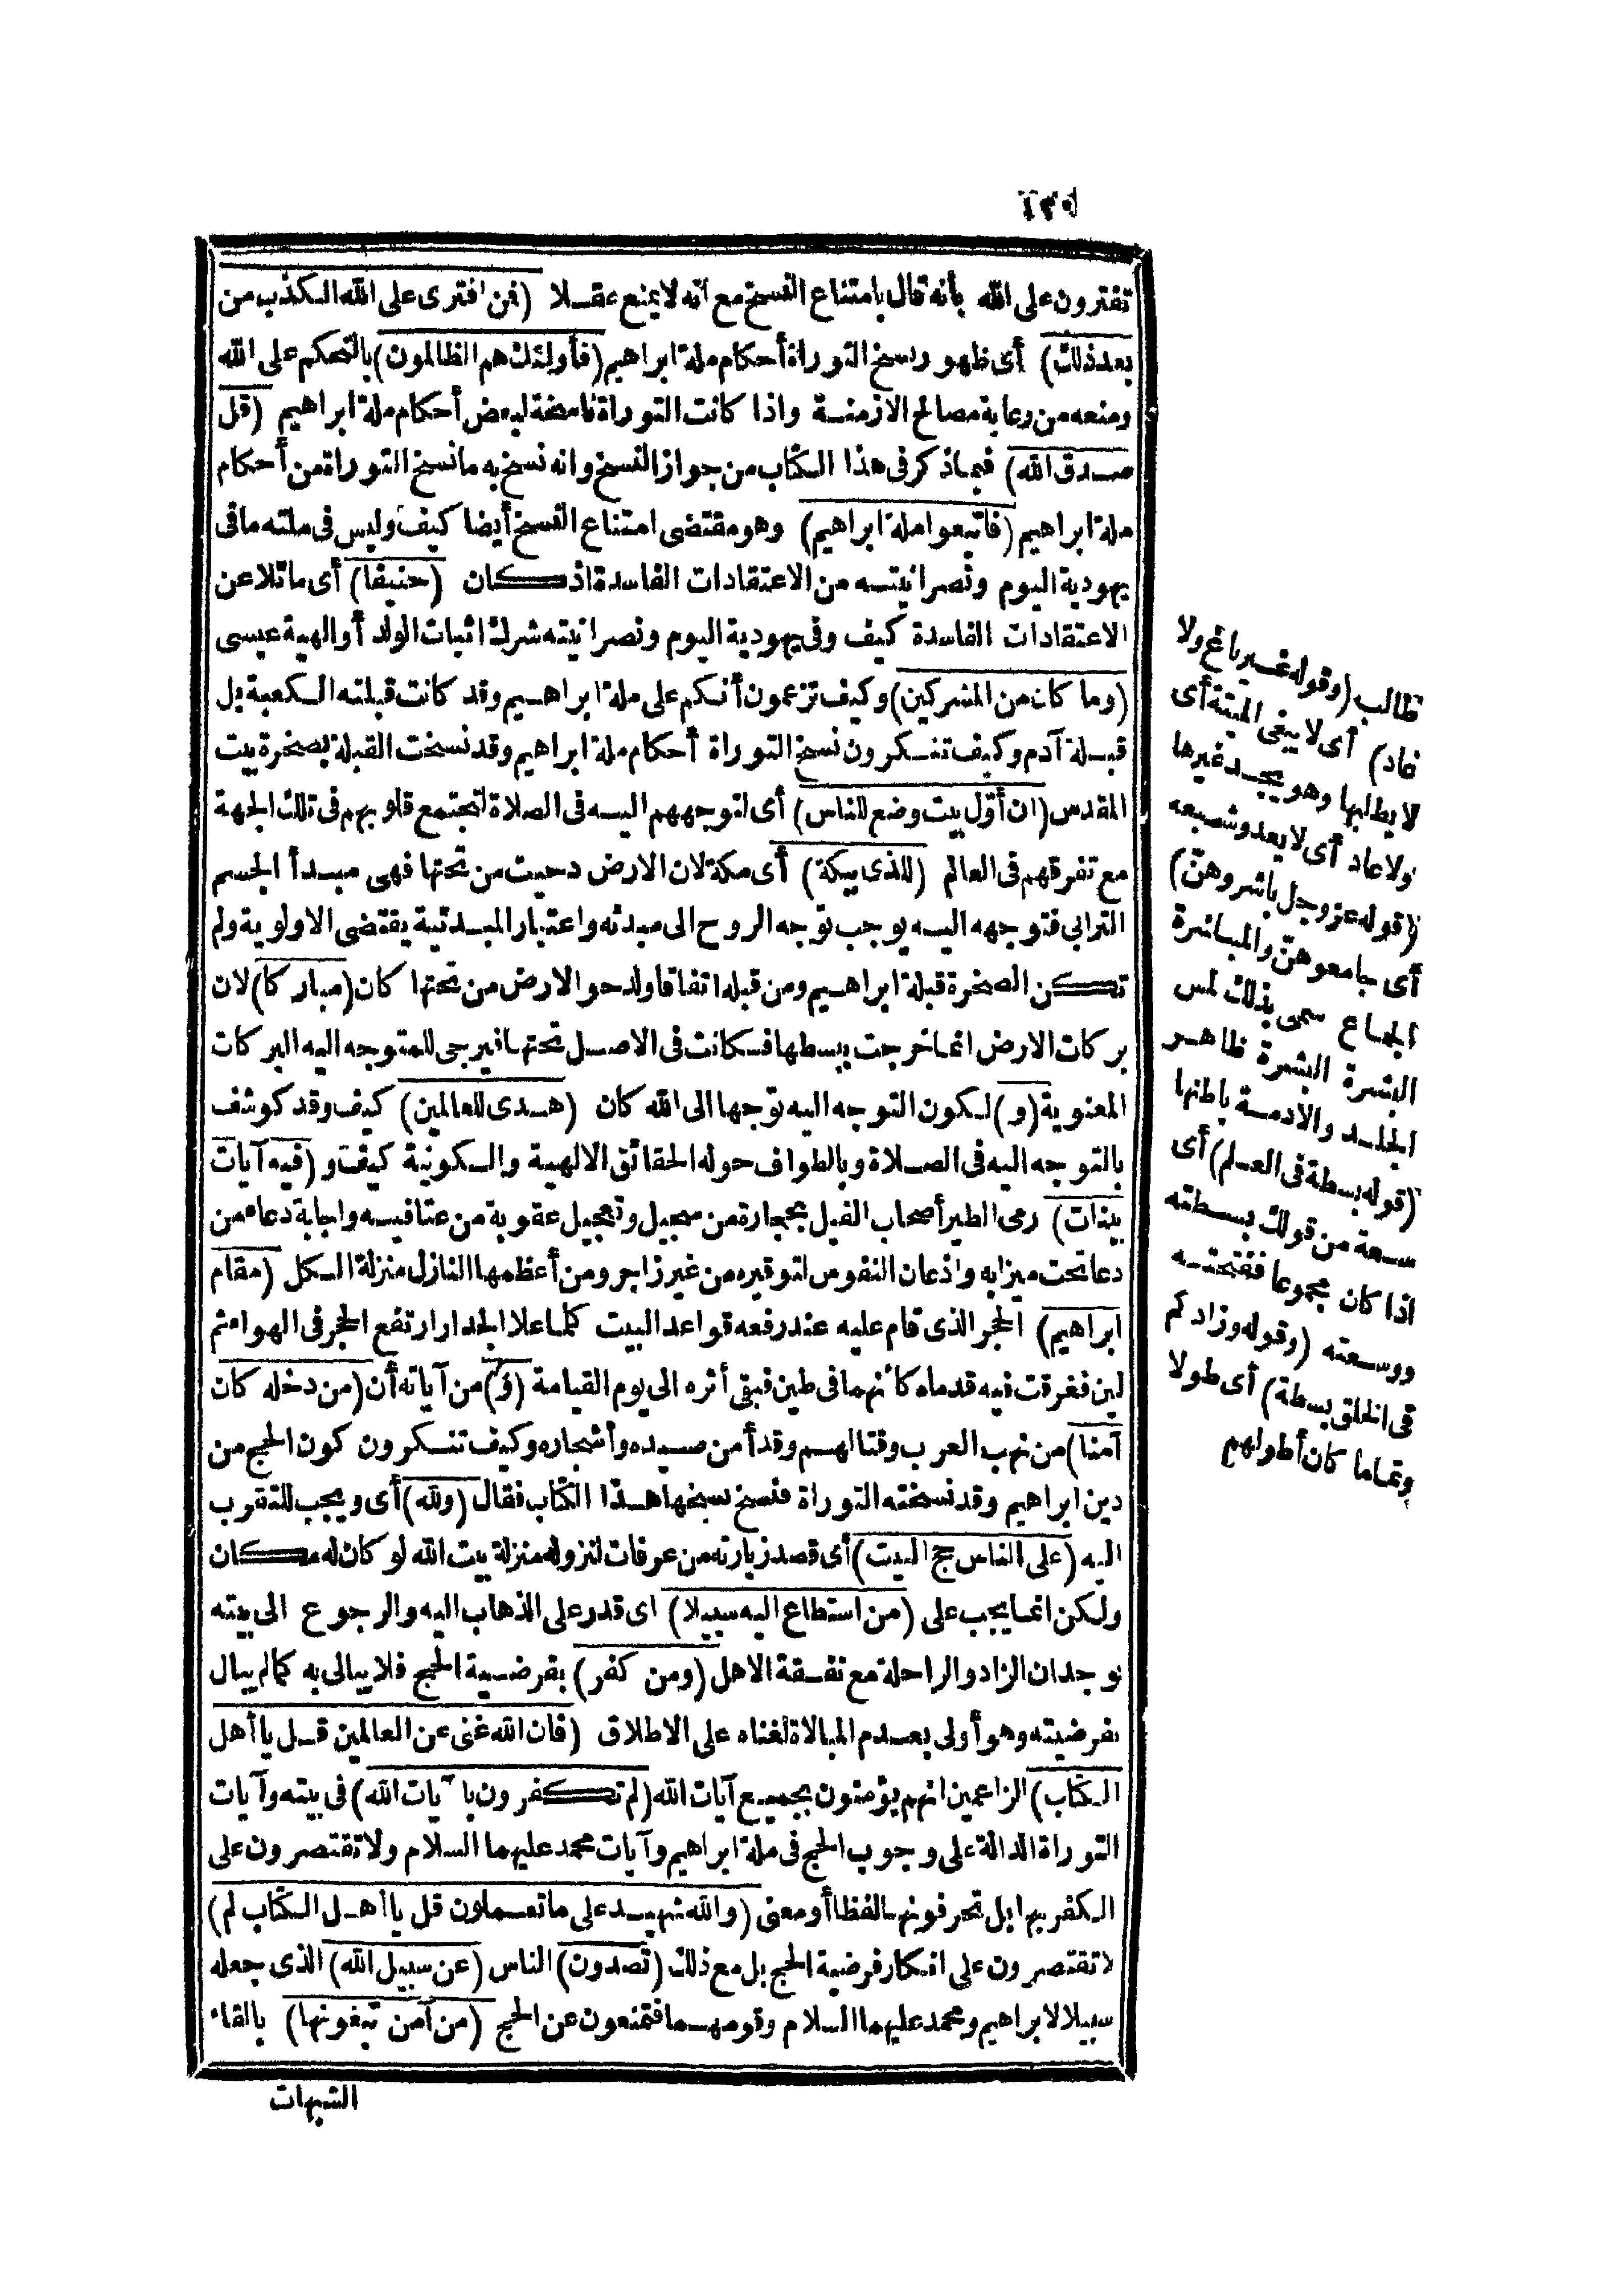 تفترون على الله بأنه قال بامتناع النسخ مع أنه لا يمنع عقلا (فمن افترى على الله الكذب من
بعد ذلك) أى ظهور نسخ التوراة أحكام ملة ابراهيم (فأولئك هم الظالمون) بالتحكم على الله
ومنعه من رعاية مصالح الازمنة واذا كانت التوراة ناسخة لبعض أحكام ملة ابراهيم (قل
صدق الله) فيما ذكر فى هذا الكتاب من جواز النسخ وانه نسخ به ما نسخ التوراة من أحكام
ملة ابراهيم (فاتبعوا ملة ابراهيم) وهو مقتضى امتناع النسخ أيضا كيف وليس فى ملته ما فى
يهودية اليوم ونصرانيته من الاعتقادات الفاسدة اذ كان (حنيفا) أى مائلا عن
الاعتقادات الفاسدة كيف وفى يهودية اليوم ونصرانيته شرك اثبات الولد أو الهية عيسى
(وما كان من المشركين) وكيف تزعمون أنكم على ملة ابراهيم وقد كانت قبلته الكعبة بل
قبلة آدم وكيف تنكرون نسخ التوراة أحكام ملة ابراهيم وقد نسخت القبلة بصخرة بيت
المقدس (ان أوّل بيت وضع للناس) أى لتوجههم اليه فى الصلاة لتجتمع قلوبهم فى تلك الجهة
مع تفرقهم فى العالم (للذى ببكة) أى مكة لان الارض دحيت من تحتها فهى مبدأ الجسم
الترابى فتوجهه اليه يوجب توجه الروح الى مبدئه واعتبار المبدئية يقتضى الاولوية ولم
تكن الصخرة قبلة ابراهيم ومن قبله اتفاقا ولدحو الارض من تحتها كان (مباركا) لان
بركات الارض انما خرجت ببسطها فكانت فى الاصل تحتها فيرجى للمتوجه اليه البركات
المعنوية (و) لكون التوجه اليه توجها الى الله كان (هدى للعالمين) كيف وقد كوشف
بالتوجه اليه فى الصلاة وبالطواف حوله الحقائق الالهية والكونية كيف و (فيه آيات
بينات) رمى الطير أصحاب الفيل بحجارة من سجيل وتعجيل عقوبة من عتا فيه واجابة دعاء من
دعا تحت ميزابه واذعان النفوس لتوقيره من غير زاجر ومن أعظمها النازل منزلة الكل (مقام
ابراهيم) الحجر الذى قام عليه عند رفعه قواعد البيت كلما علا الجدار ارتفع الحجر فى الهواء ثم
لين فغرقت فيه قدماه كأنهما فى طين فبقى أثره الى يوم القيامة (و) من آياته أن (من دخله كان
آمنا) من نهب العرب وقتالهم وقد أمن صيده وأشجاره وكيف تنكرون كون الحج من
دين ابراهيم وقد نسخته التوراة فنسخ نسخها هذا الكتاب فقال (ولله) أى ويجب للتقرب
اليه (على الناس حج البيت) أى قصد زيارته من عرفات لنزوله منزلة بيت الله لو كان له مكان
ولكن انما يجب على (من استطاع اليه سبيلا) اى قدر على الذهاب اليه والرجوع الى بيته
بوجدان الزاد والراحلة مع نفقة الاهل (ومن كفر) بفرضية الحج فلا يبالى به كما لم يبال
بفرضيته وهو أولى بعدم المبالاة لغناه على الاطلاق (فان الله غنى عن العالمين قل يا أهل
الكتاب) الزاعمين انهم يؤمنون بجميع آيات الله (لم تكفرون بآيات الله) فى بيته وآيات
التوراة الدالة على وجوب الحج فى ملة ابراهيم وآيات محمد عليهما السلام ولا تقتصرون على
الكفر بها بل تحرفونها لفظا أو معنى (والله شهيد على ما تعملون قل يا أهل الكتاب لم)
لا تقتصرون على انكار فرضية الحج بل مع ذلك (تصدون) الناس (عن سبيل الله) الذى جعله
سبيلا لابراهيم ومحمد عليهما السلام وقومهما فتمنعون عن الحج (من آمن تبغونها) بالقاء
الشبهات
طالب (وقوله غير باغ ولا
عاد) أى لا يبغى الميتة أى
لا يطلبها وهو يجد غيرها
ولا عاد أى لا يعدو شبعه
(قوله عز وجل باشروهنّ)
أى جامعوهنّ والمباشرة
الجماع سمى بذلك لمس
البشرة البشرة ظاهر
الجلد والادمة باطنها
(قوله بسطة فى العلم) أى
سعة من قولك بسطته
اذا كان مجموعا ففتحته
ووسعته (وقوله وزادكم
فى الخلق بسطة) أى طولا
وتماما كان أطولهم